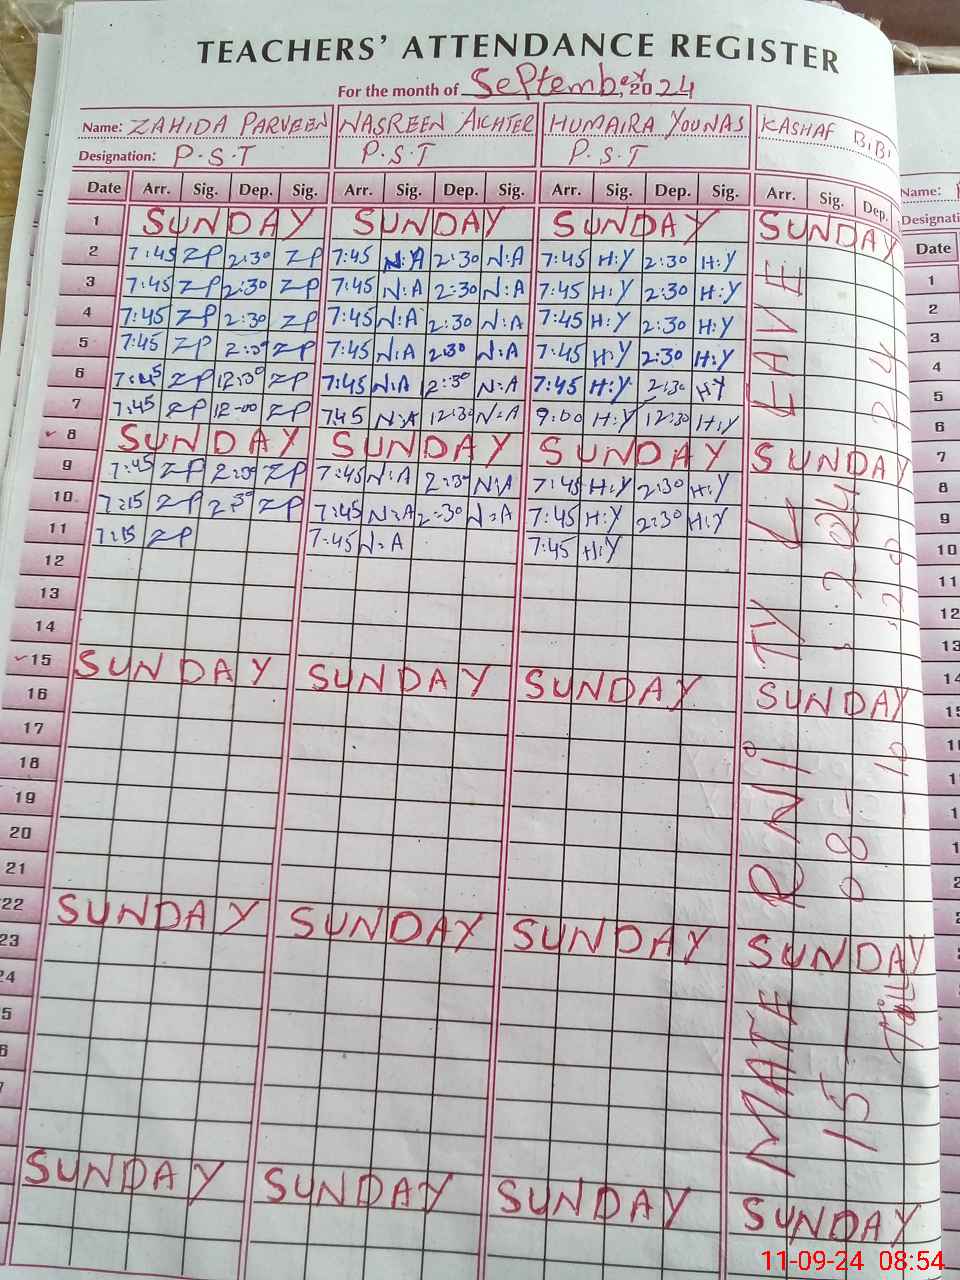 TEACHERS' ATTENDANCE REGISTER
For the month of September, 2024
Name: ZAHIDA PARVEEN NASREEN AKHTER HUMAIRA YOUNAS KASHAF BiBi
Designation: P.S.T P.S.T P.S.T
Date Arr. Sig. Dep. Sig. Arr. Sig. Dep. Sig. Arr. Sig. Dep. Sig. Arr. Sig. Dep.
1 SUNDAY SUNDAY SUNDAY SUNDAY
2 7:45 ZP 2:30 ZP 7:45 N:A 2:30 N:A 7:45 H:Y 2:30 H:Y
3 7:45 ZP 2:30 ZP 7:45 N:A 2:30 N:A 7:45 H:Y 2:30 H:Y
4 7:45 ZP 2:30 ZP 7:45 N:A 2:30 N:A 7:45 H:Y 2:30 H:Y
5 7:45 ZP 2:30 ZP 7:45 N:A 2:30 N:A 7:45 H:Y 2:30 H:Y
6 7:45 ZP 12:30 ZP 7:45 N:A 12:30 N:A 7:45 H:Y 2:30 H:Y
7 7:45 ZP 12-00 ZP 7:45 N:A 12:30 N:A 9:00 H:Y 12:30 H:Y
8 SUNDAY SUNDAY SUNDAY SUNDAY
9 7:45 ZP 2:30 ZP 7:45 N:A 2:30 N:A 7:45 H:Y 2:30 H:Y
10 7:15 ZP 2:30 ZP 7:45 N:A 2:30 N:A 7:45 H:Y 2:30 H:Y
11 7:15 ZP 7:45 N:A 7:45 H:Y
12
13
14
15 SUNDAY SUNDAY SUNDAY SUNDAY
16
17
18
19
20
21
22 SUNDAY SUNDAY SUNDAY SUNDAY
23
24
5
6
7
SUNDAY SUNDAY SUNDAY SUNDAY
MATERNiTY LEAVE
15-08-2024
Till
Name:
Date
1
2
3
4
5
6
7
8
9
10
11
12
13
14
15
11-09-24 08:54